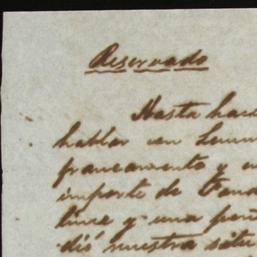 Reservado
Hasta hace
hablar con
francamente y
importe de
linee y una
dió nuestra situ